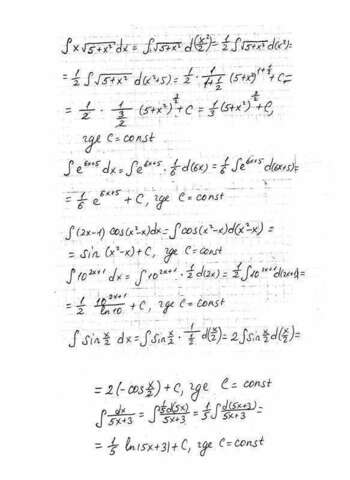 ∫x√5+x² dx = ∫√5+x² d(x²/2) = 1/2 ∫√5+x² d(x²)=
= 1/2 ∫√5+x² d(x²+5) = 1/2 · 1/(1+1/2) (5+x²)^(1+1/2) + C =
= 1/2 · 1/(3/2) (5+x²)^(3/2) + C = 1/3 (5+x²)^(3/2) + C,
где C = const
∫e^(6x+5) dx = ∫e^(6x+5) · 1/6 d(6x) = 1/6 ∫e^(6x+5) d(6x+5)=
= 1/6 e^(6x+5) + C, где C = const
∫(2x-1) cos(x²-x)dx = ∫cos(x²-x)d(x²-x) =
= sin (x²-x)+C, где C = const
∫10^(2x+1) dx = ∫10^(2x+1) · 1/2 d(2x) = 1/2 ∫10^(2x+1) d(2x+1)=
= 1/2 10^(2x+1)/ln10 + C, где C = const
∫sin x/2 dx = ∫sin x/2 · 1/(1/2) d(x/2) = 2∫sin x/2 d(x/2)=
= 2(-cos x/2) + C, где C = const
∫dx/(5x+3) = ∫(1/5 d(5x))/(5x+3) = 1/5 ∫d(5x+3)/(5x+3) =
= 1/5 ln|5x+3| + C, где C = const